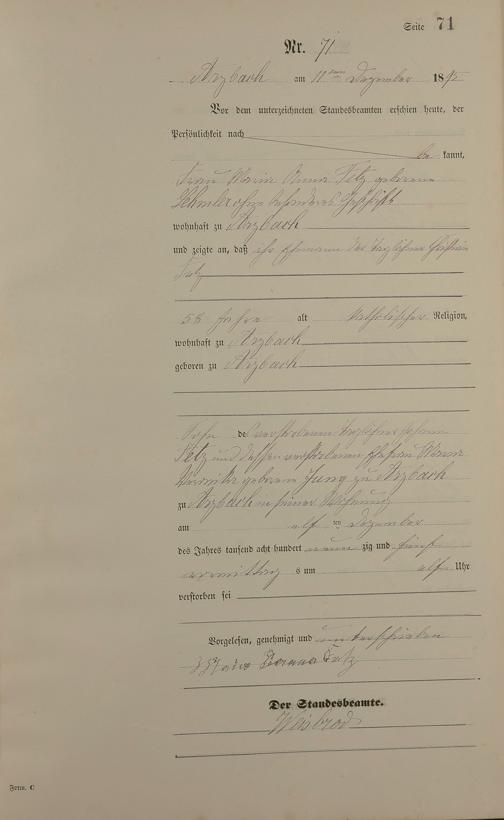 Seite 71
Nr. 71
Arzbach am 11ten Dezember 1895
Vor dem unterzeichneten Standesbeamten erschien heute, der
Persönlichkeit nach
be kannt,
Frau Maria Anna Fetz geborene
ohne besonderes Geschäft
wohnhaft zu Arzbach
und zeigte an, daß ihr Ehemann der Taglöhner
Fetz
58 Jahre alt katholischer Religion,
wohnhaft zu Arzbach
geboren zu Arzbach
Sohn des verstorbenen Taglöhners Johann
Fetz und dessen verstorbenen Ehefrau Maria
geborene Jung zu Arzbach
zu Arzbach in seiner Wohnung
am elf ten Dezember
des Jahres tausend acht hundert neun zig und fünf
vormittag s um elf Uhr
verstorben sei
Vorgelesen, genehmigt und unterschrieben
Maria Anna Fetz
Der Standesbeamte.
Weisbrod
Form. C